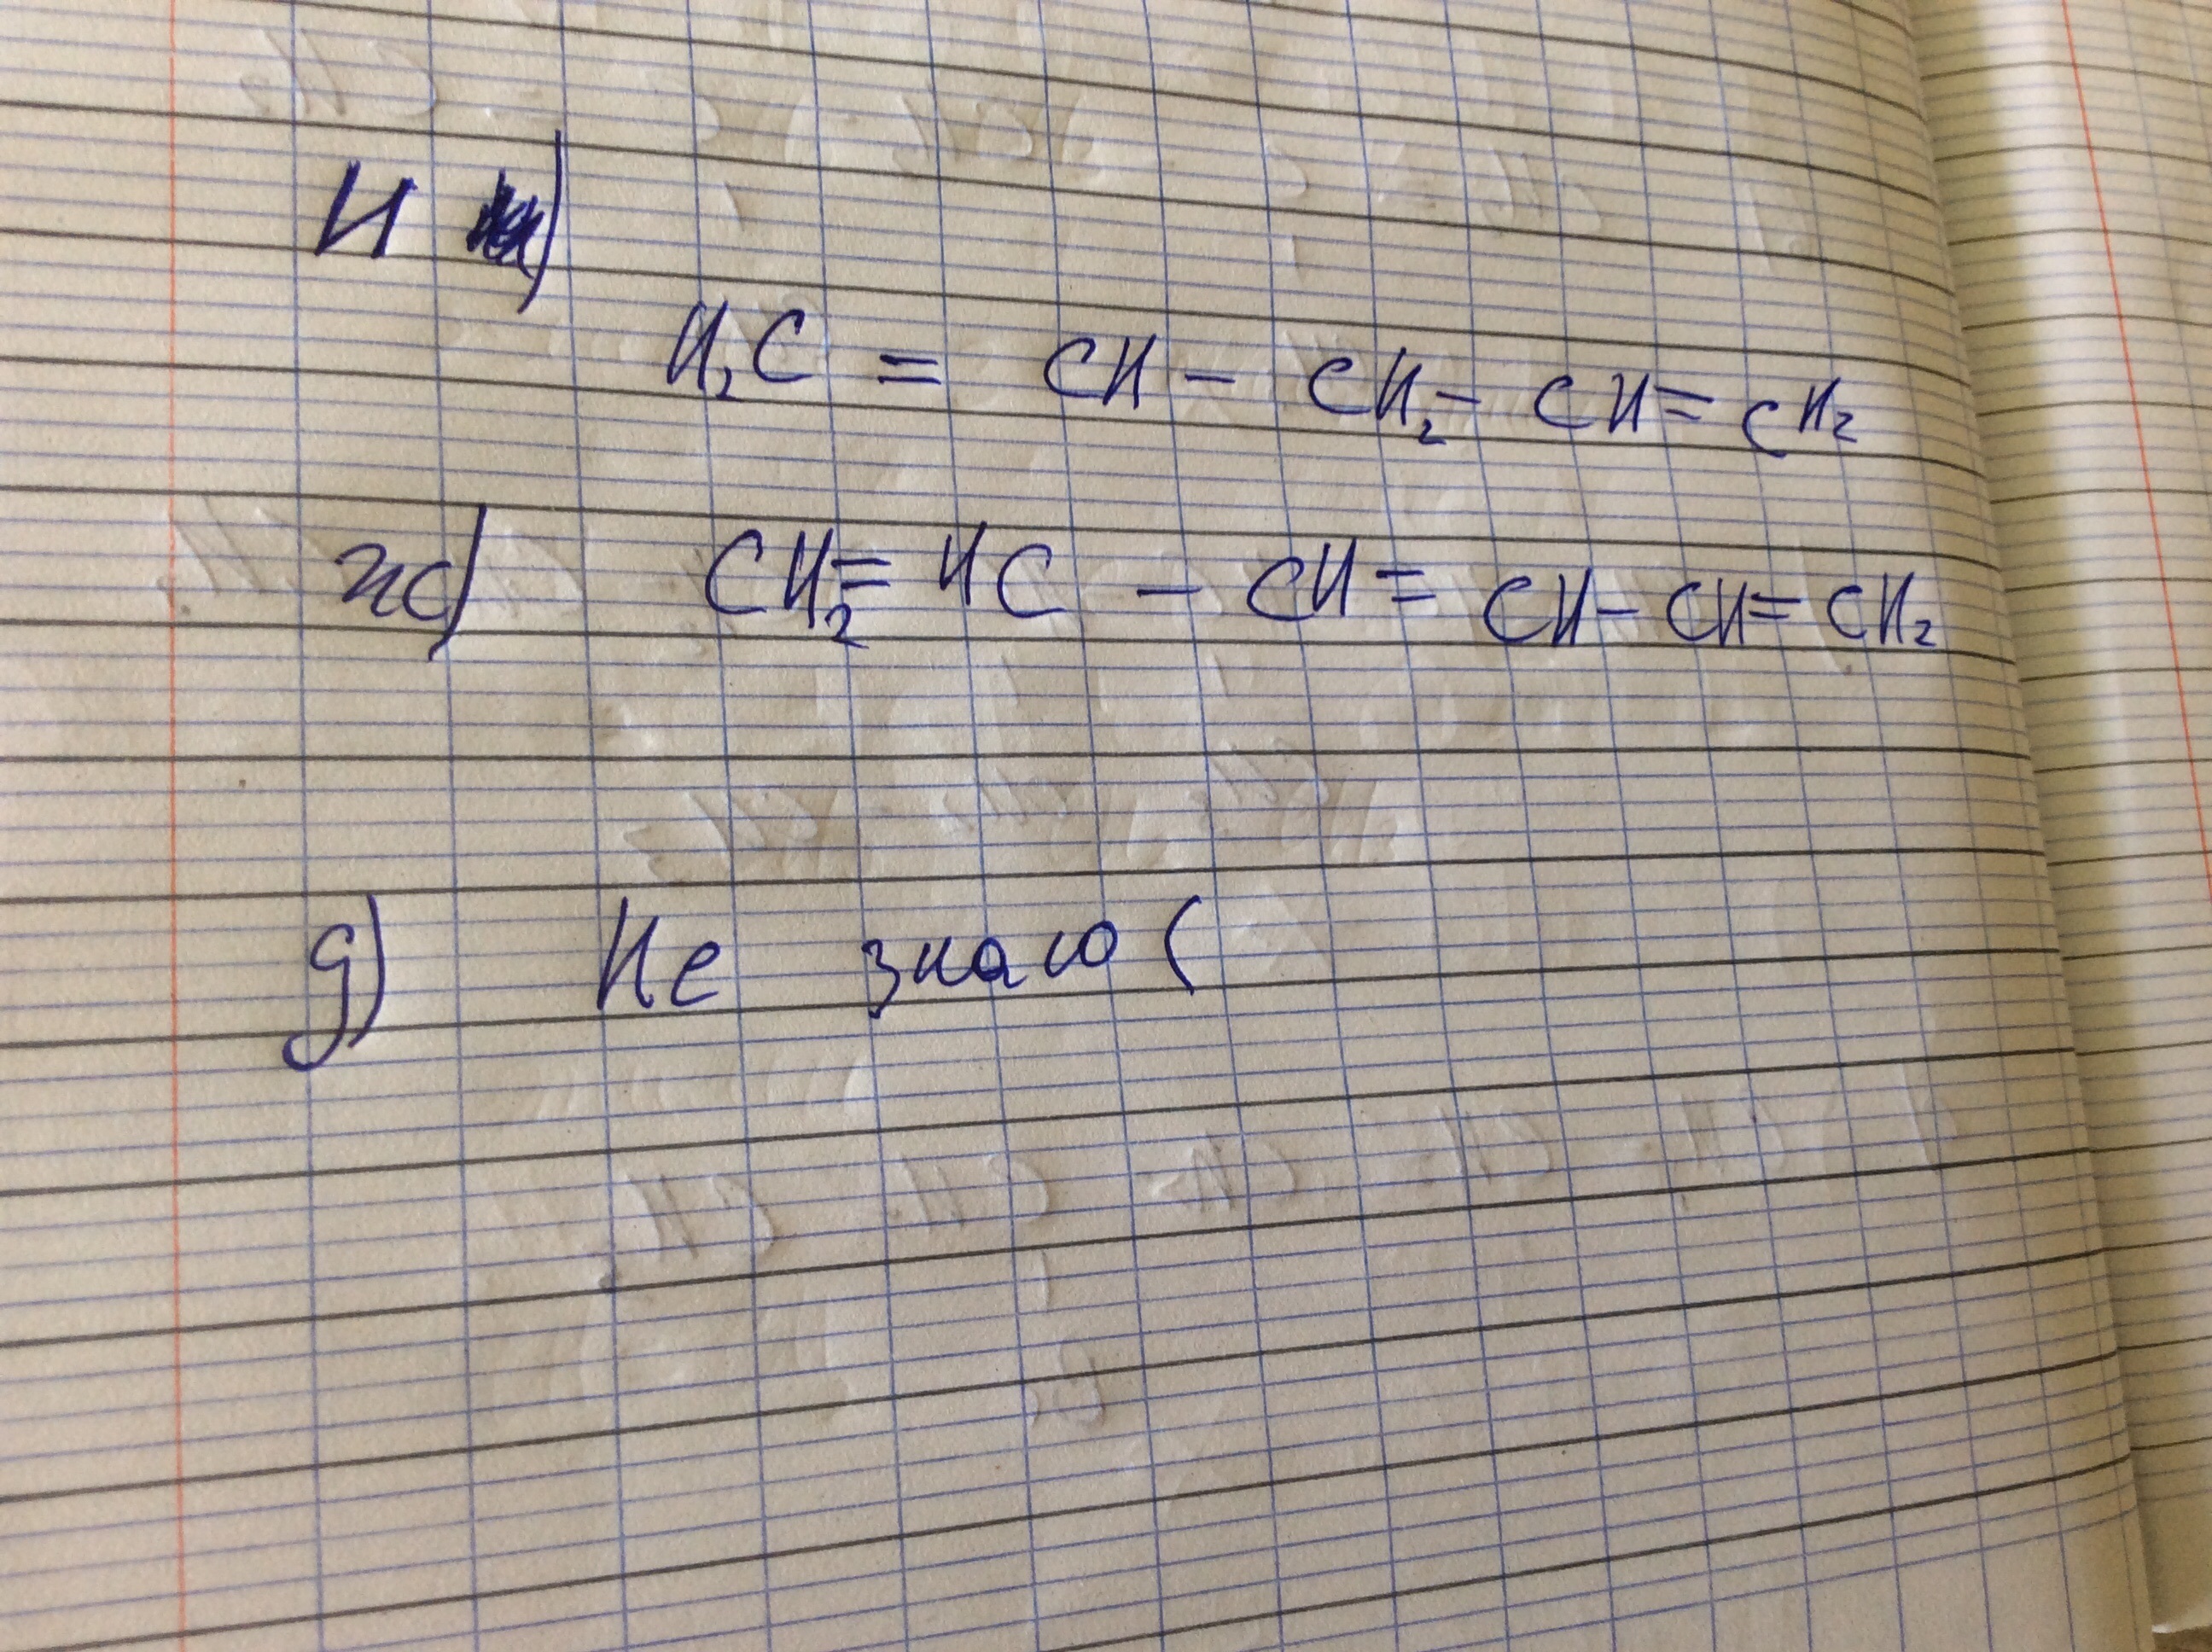 И )
H₂C = CH - CH₂ - CH = CH₂
ж) CH₂ = HC - CH = CH - CH = CH₂
д) Не знаю (